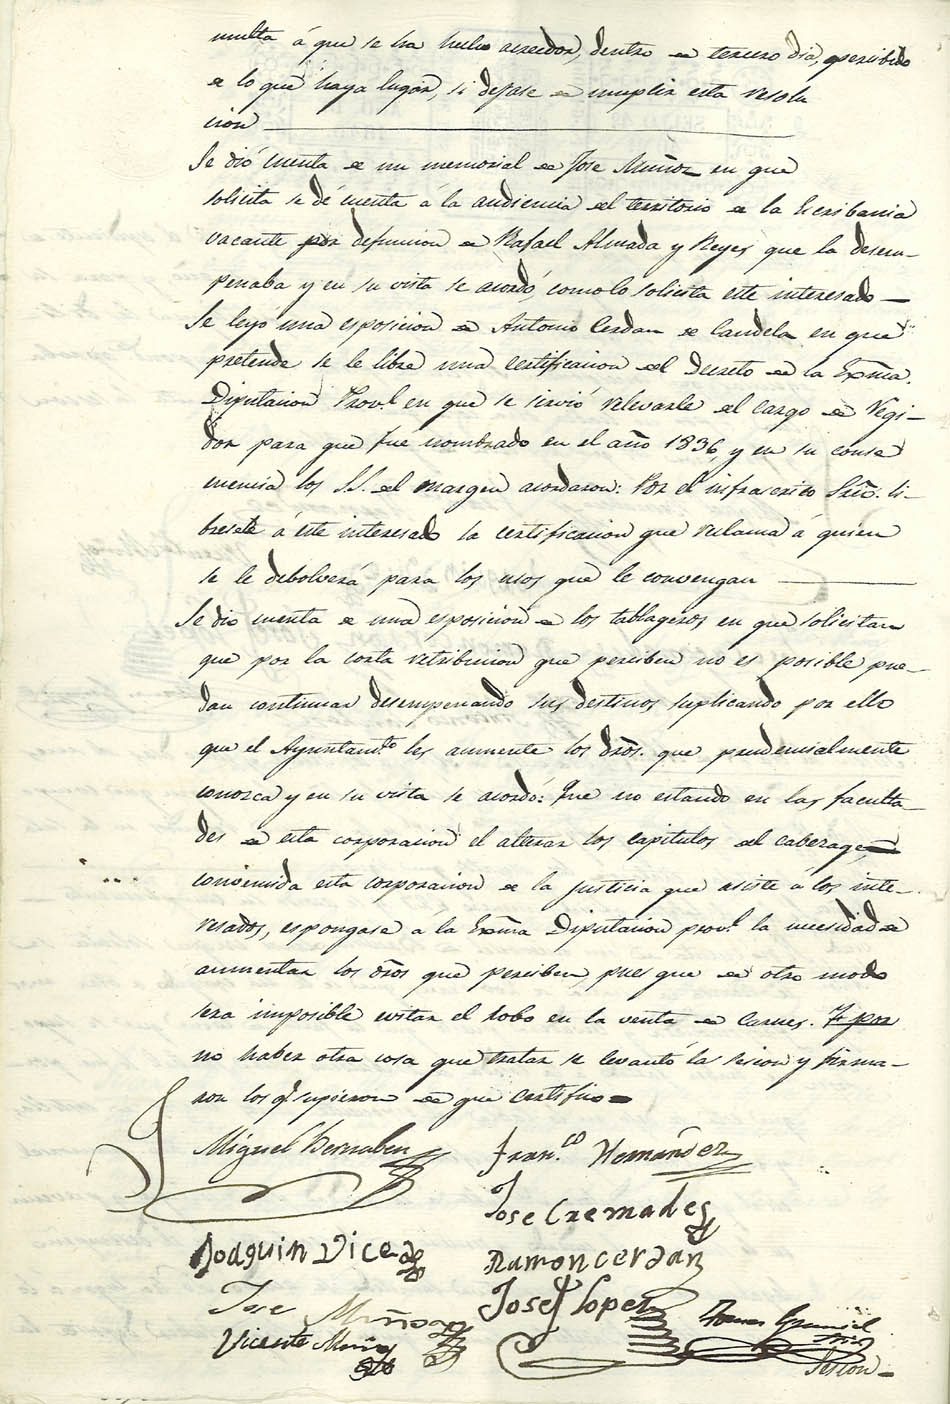 multa á que se ha hecho acreedor, dentro de tercero dia, apercibido
de lo que haya lugar, si dejase de cumplir esta resolu
cion
Se dió cuenta de un memorial de Jose Muñoz en que
solicita se dé cuenta á la audiencia del territorio de la Escribania
vacante por defuncion de Rafael Almada y Reyes que la desem-
penaba y en su vista se acordó, como lo solicita este interesado
Se leyo una esposicion de Antonio Cerdan de Candela en que
pretende se le libre una certificacion del Decreto de la Exma.
Diputacion Provl. en que se sirvió relevarle del cargo de Regi-
dor para que fue nombrado en el año 1836, y en su conse
cuencia los SS. del margen acordaron: Por el infrascrito Srio. li-
bresele á este interesado la certificacion que reclama á quien
se le debolverá para los usos que le convengan
Se dio cuenta de una esposicion de los tablageros en que solicitan
que por la corta retribucion que perciben no es posible pue-
dan continuar desempenando sus destinos suplicando por ello
que el Ayuntamto. les aumente los dros. que prudencialmente
conozca y en su vista se acordó: Que no estando en las faculta-
des de esta corporacion el alterar los capitulos del cabezage
convencida esta corporacion de la justicia que asiste á los inte-
resados, espongase á la Exma Diputacion provl. la necesidad de
aumentar los dros que perciben, pues que de otro modo
será imposible evitar el robo en la venta de Carnes. Y por
no haber otra cosa que tratar se levantó la sesion y firma-
ron los q. supieron de que certifico
Miguel Bernabeu Franco. Hernández
Jose Cremades
Joaquin Vicedo Ramon cerdan
Jose Muñoz Josef Lopez
Vicente Muñoz
Srio
Sesion